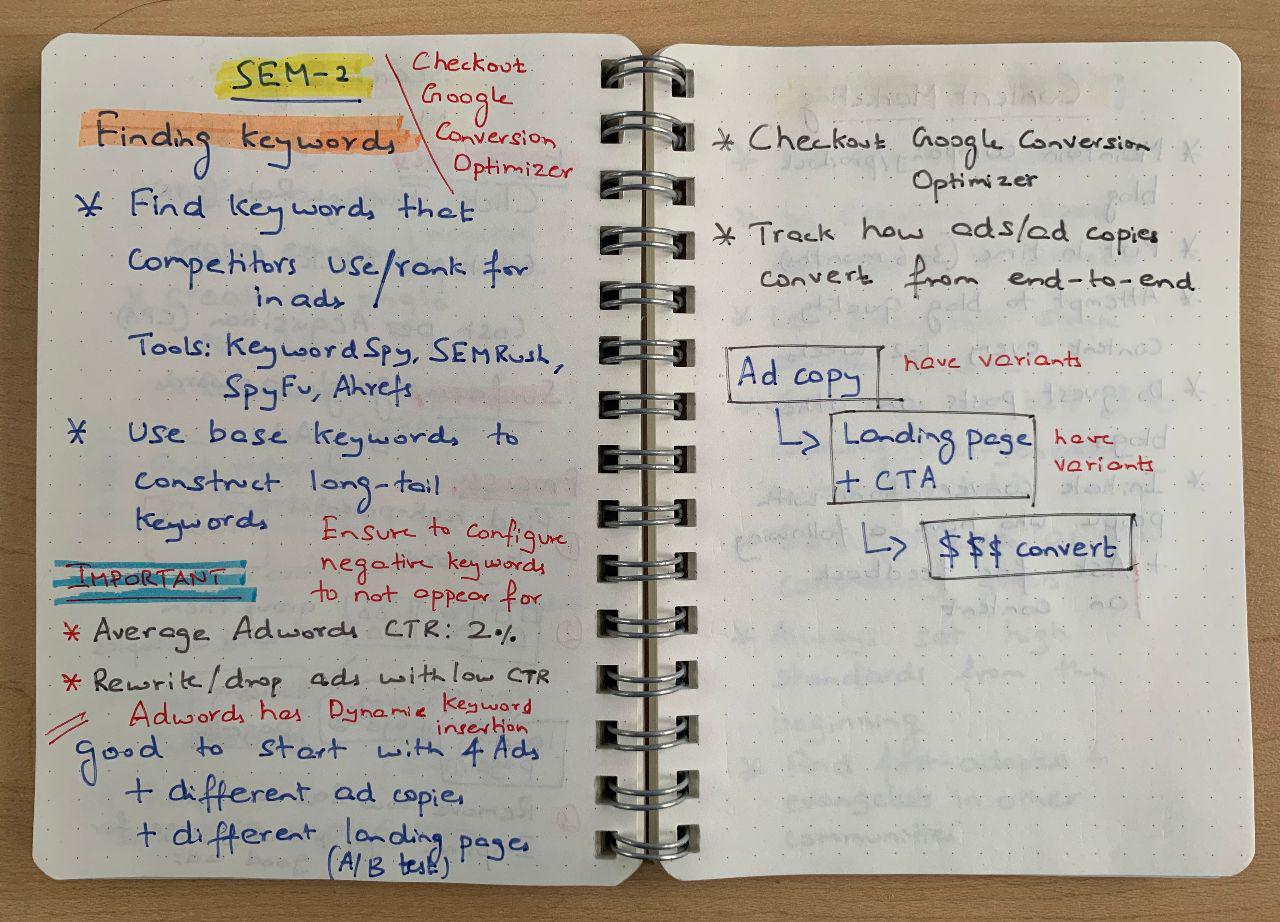 SEM-2
Checkout
Google
Conversion
Optimizer
Finding keywords
* Find keywords that
competitors use/rank for
in ads
Tools: KeywordSpy, SEMRush,
SpyFu, Ahrefs
* Use base keywords to
construct long-tail
keywords
Ensure to configure
negative keywords
to not appear for
IMPORTANT
* Average Adwords CTR: 2%
* Rewrite/drop ads with low CTR
Adwords has Dynamic Keyword
insertion
Good to start with 4 Ads
+ different ad copies
+ different landing pages
(A/B test)
* Checkout Google Conversion
Optimizer
* Track how ads/ad copies
convert from end-to-end
Ad copy have variants
Landing page have
+ CTA variants
$$$ convert